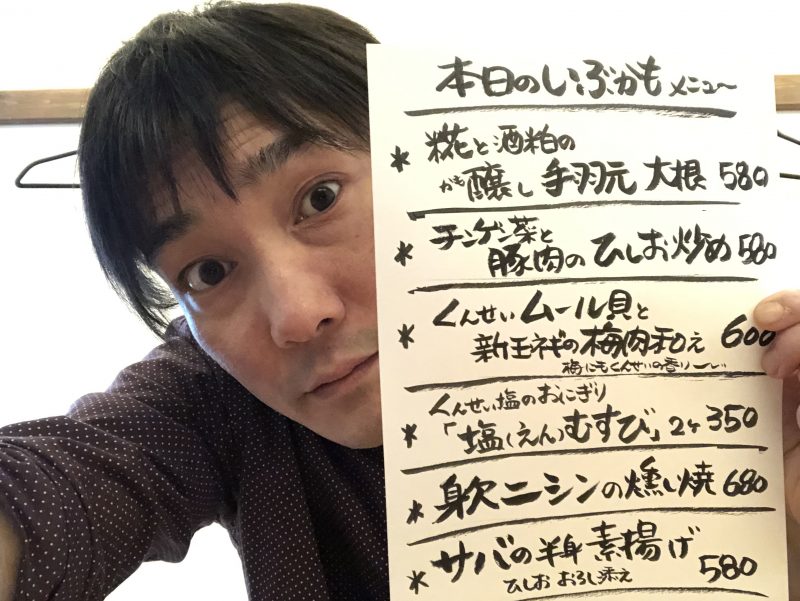 本日のいぶかもメニュー
* 糀と酒粕の
かも醸し 手羽元 大根 580
* チンゲン菜と
豚肉のひしお炒め 580
* くんせいムール貝と
新玉ネギの梅肉和え 600
梅にもくんせいの香りーい
くんせい塩のおにぎり
* 「塩(えん)むすび」2ヶ 350
* 身欠ニシンの燻し焼 680
* サバの半身 素揚げ 580
ひしお おろし添え